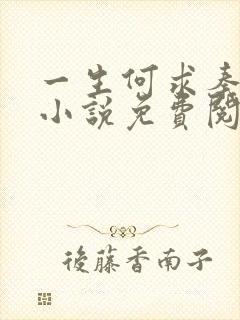 一生何求奏
小說免費閱
後藤香南子